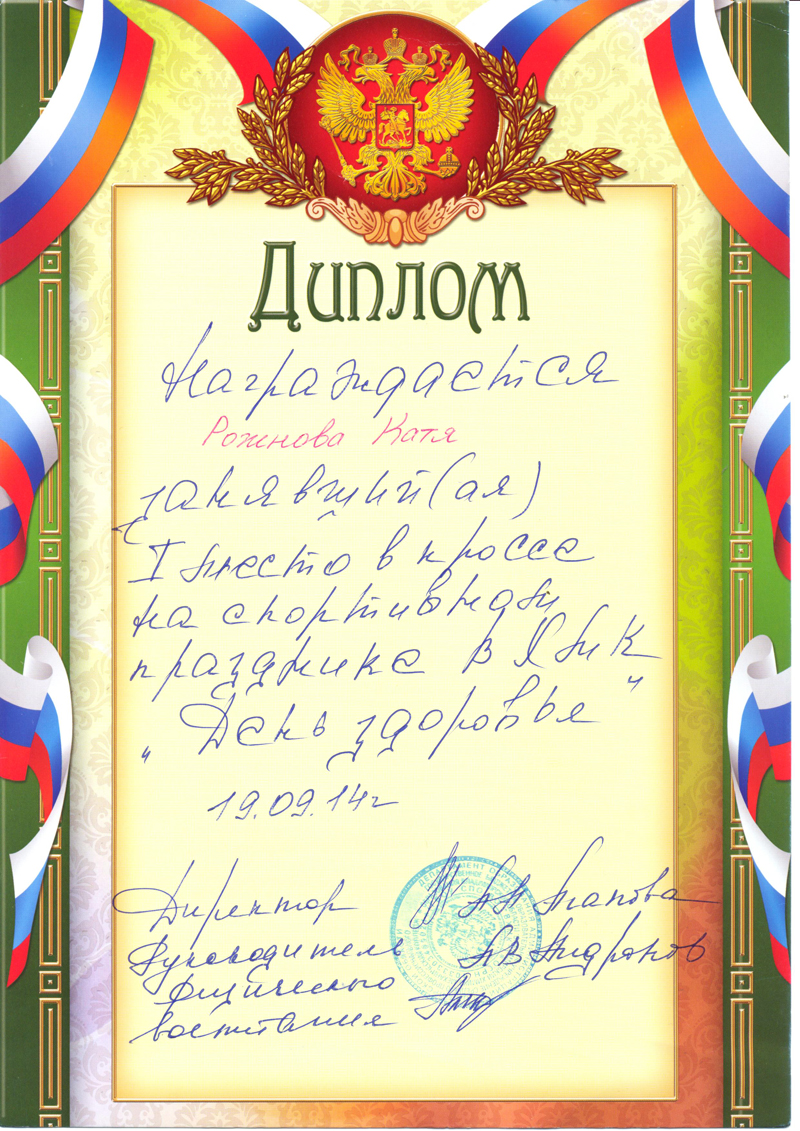 Диплом
Награждается
Рожнова Катя
занявший(ая)
I место в кроссе
на спортивном
празднике в ЯМК
„День здоровья"
19.09.14г
Директор
Руководитель А В Андронов
физического
воспитания